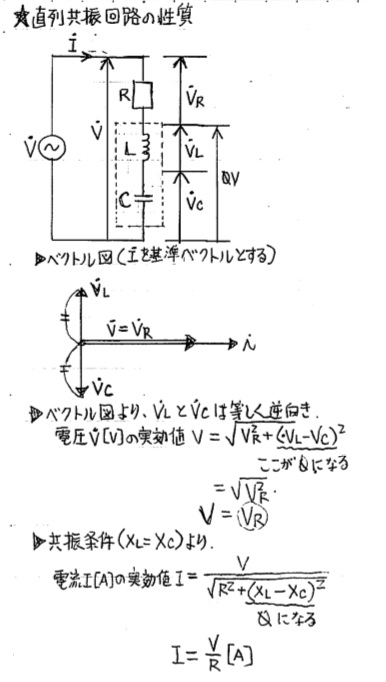 ★直列共振回路の性質
İ
R
V̇R
V̇
V̇
L
V̇L
0V
C
V̇C
▶ベクトル図(İを基準ベクトルとする)
V̇L
V̇=V̇R
İ
V̇C
▶ベクトル図より、V̇LとV̇Cは等しく逆向き.
電圧V̇[V]の実効値 V=√(VR²+(VL-VC)²)
ここが0になる
=√VR².
V=VR
▶共振条件(XL=XC)より.
電流I[A]の実効値 I=V/√(R²+(XL-XC)²)
0になる
I=V/R[A]